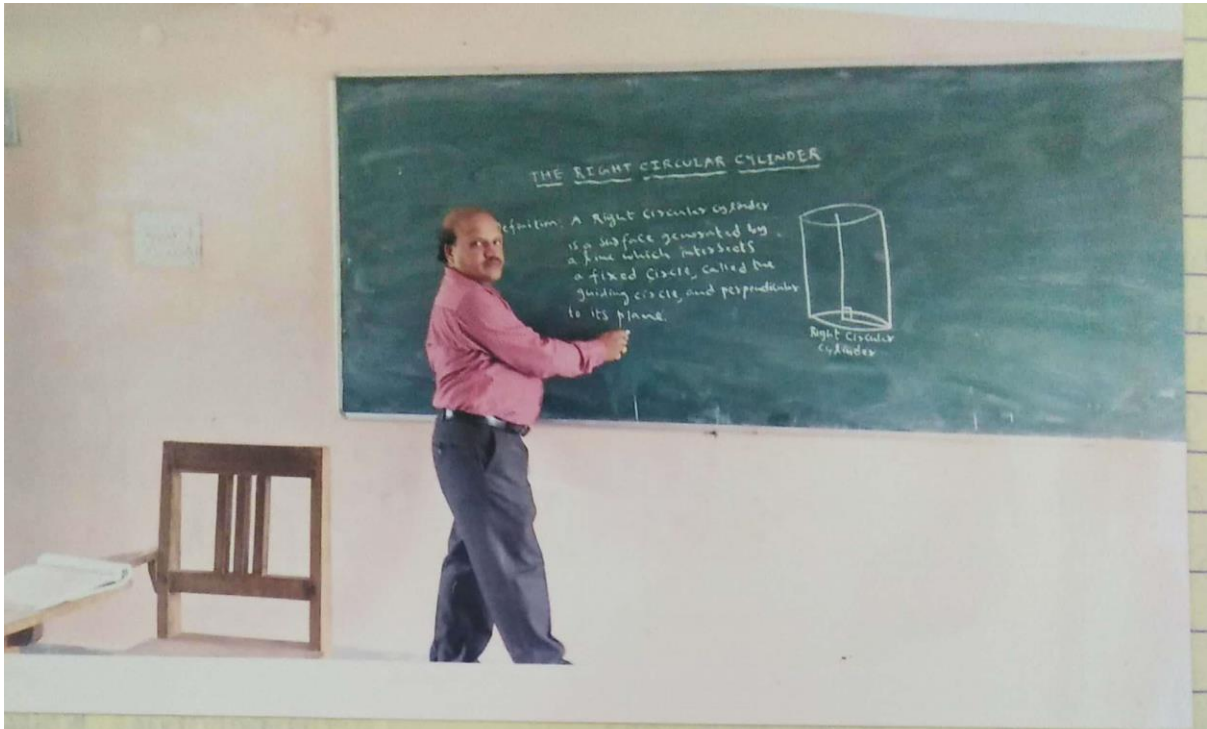 THE RIGHT CIRCULAR CYLINDER
efinition: A Right circular cylinder
is a surface generated by
a line which intersects
a fixed circle, called the
guiding circle, and perpendicular
to its plane.
Right circular
cylinder